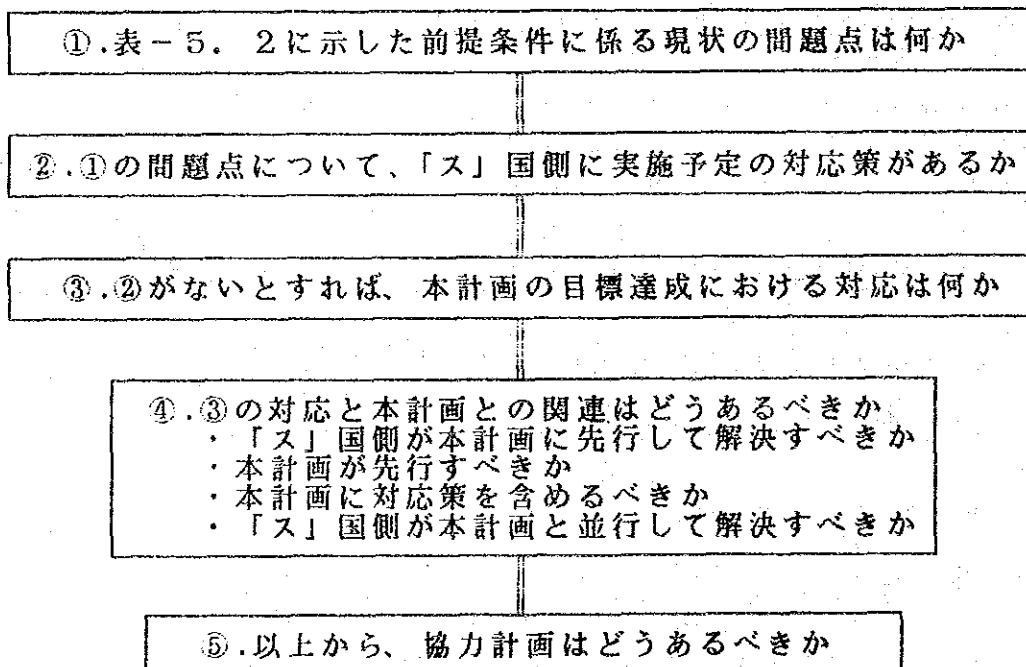 ①.表-5.2に示した前提条件に係る現状の問題点は何か
②.①の問題点について、「ス」国側に実施予定の対応策があるか
③.②がないとすれば、本計画の目標達成における対応は何か
④.③の対応と本計画との関連はどうあるべきか
・「ス」国側が本計画に先行して解決すべきか
・本計画が先行すべきか
・本計画に対応策を含めるべきか
・「ス」国側が本計画と並行して解決すべきか
⑤.以上から、協力計画はどうあるべきか